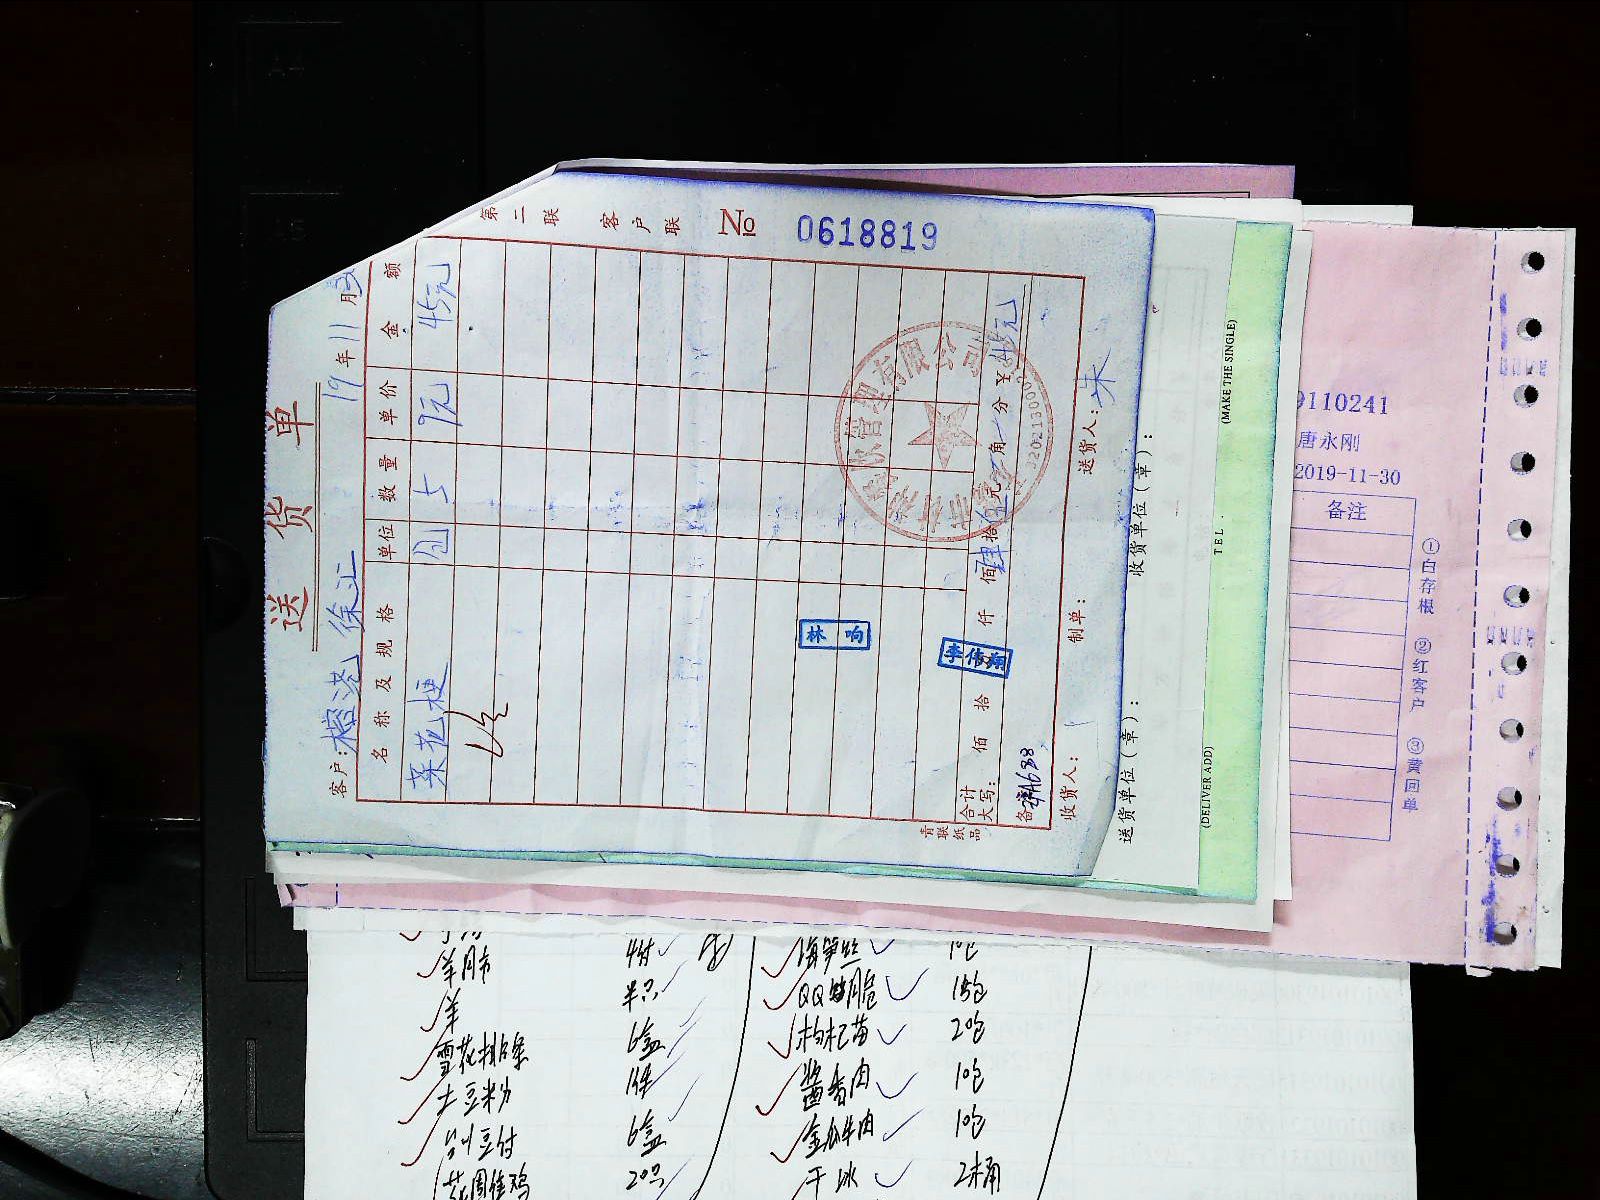 第二联 客户联 № 0618819
送货单
19年11月
客户:榕港 徐汇
名称及规格 单位 数量 单价 金额
菜花梗 包 5 9元 45元
林响
李伟翔
合计大写: 佰 拾 仟 佰 肆拾伍元 角 分 ¥ 45元
备注 638
收货人: 制单: 送货人: 朱
青联纸品
送货单位(章): 收货单位(章):
(DELIVER ADD) TEL. (MAKE THE SINGLE)
9110241
唐永刚
2019-11-30
备注
①白存根 ②红客户 ③黄回单
羊 半只
雪花排条 6盒
土豆粉 1件
豆付 6盒
20只
海笋丝 10包
QQ 15包
枸杞苗 20包
酱香肉 10包
金瓜牛肉 10包
干冰 2桶